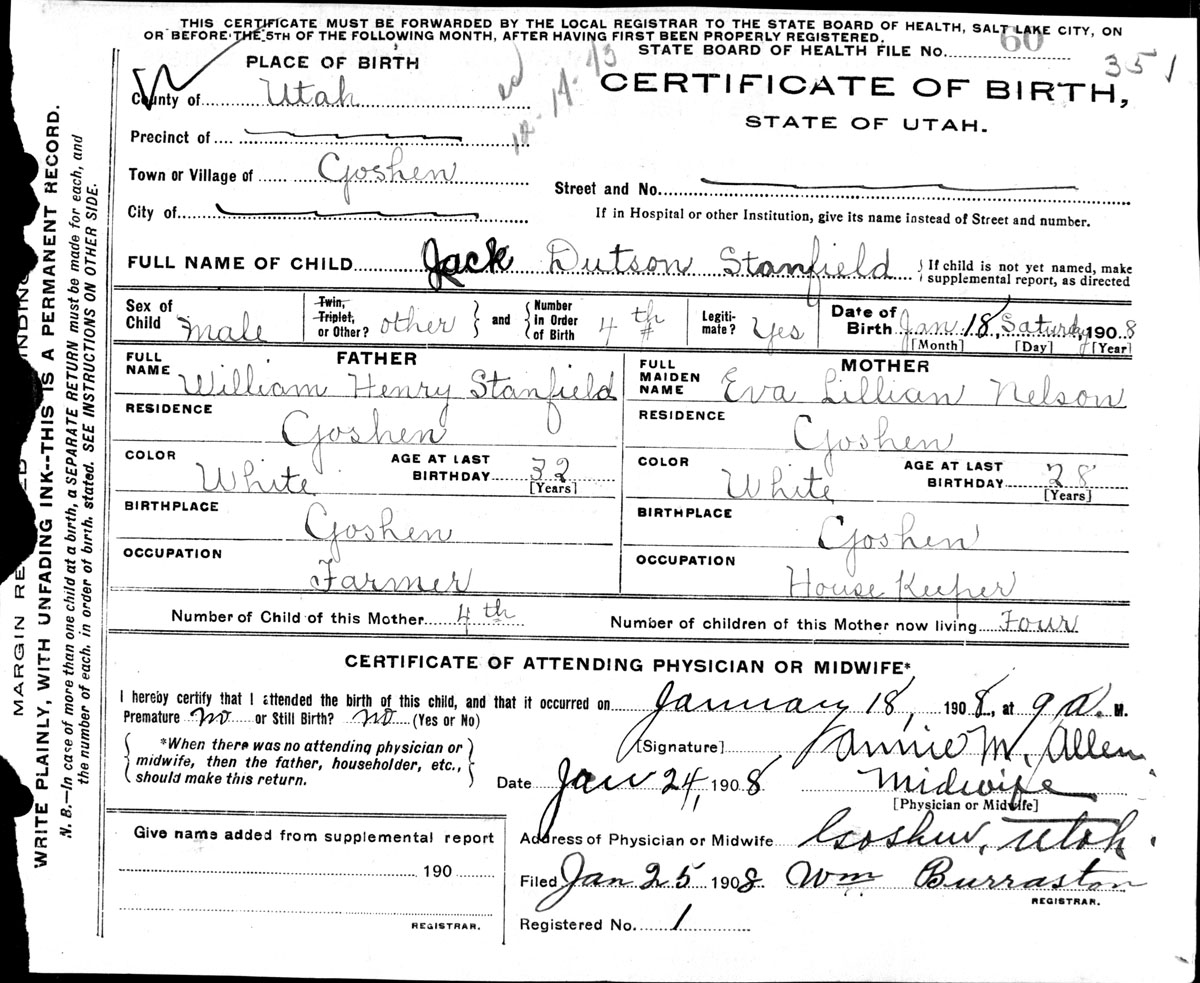 THIS CERTIFICATE MUST BE FORWARDED BY THE LOCAL REGISTRAR TO THE STATE BOARD OF HEALTH, SALT LAKE CITY, ON
OR BEFORE THE 5TH OF THE FOLLOWING MONTH, AFTER HAVING FIRST BEEN PROPERLY REGISTERED.
STATE BOARD OF HEALTH FILE No. 60
351
PLACE OF BIRTH
CERTIFICATE OF BIRTH,
STATE OF UTAH.
County of Utah
12-14-43
Precinct of
Town or Village of Goshen
Street and No.
City of
If in Hospital or other Institution, give its name instead of Street and number.
FULL NAME OF CHILD Jack Dutson Stanfield {If child is not yet named, make supplemental report, as directed
Sex of Child Male
Twin, Triplet, or Other? other
and {Number in Order of Birth 4th
Legitimate? Yes
Date of Birth Jan 18, Saturday, 1908
[Month] [Day] [Year]
FATHER
FULL NAME William Henry Stanfield
RESIDENCE
Goshen
COLOR White AGE AT LAST BIRTHDAY 32 [Years]
BIRTHPLACE
Goshen
OCCUPATION
Farmer
MOTHER
FULL MAIDEN NAME Eva Lillian Nelson
RESIDENCE
Goshen
COLOR White AGE AT LAST BIRTHDAY 28 [Years]
BIRTHPLACE
Goshen
OCCUPATION
House Keeper
Number of Child of this Mother 4th Number of children of this Mother now living Four
CERTIFICATE OF ATTENDING PHYSICIAN OR MIDWIFE*
I hereby certify that I attended the birth of this child, and that it occurred on January 18, 1908, at 9 a. M.
Premature No or Still Birth? No (Yes or No)
{*When there was no attending physician or midwife, then the father, householder, etc., should make this return.}
[Signature] Fannie M. Allen
Date Jan 24, 1908 Midwife
[Physician or Midwife]
Address of Physician or Midwife Goshen, Utah.
Filed Jan 25 1908 Wm Burraston
REGISTRAR.
Registered No. 1
Give name added from supplemental report
190
REGISTRAR.
MARGIN RE
INDING
WRITE PLAINLY, WITH UNFADING INK--THIS IS A PERMANENT RECORD.
N. B.—In case of more than one child at a birth, a SEPARATE RETURN must be made for each, and
the number of each, in order of birth, stated. SEE INSTRUCTIONS ON OTHER SIDE.